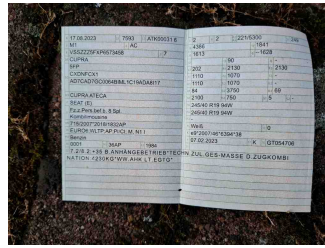 17.08.2023 7593 ATK00031 6
M1 AC
VSSZZZ5FXP6573458 7
CUPRA
5FP
CXDNFCX1
AD7CAD7GC0064BIML1C19ADA617
CUPRA ATECA
SEAT (E)
Fz.z.Pers.bef.b. 8 Spl.
Kombilimousine
715/2007*2018/1832AP
EURO6;WLTP;AP,PI/CI, M, N1 I
Benzin
0001 36AP 1984
7.2/8.2:+36 B.ANHÄNGEBETRIEB*TECHN.ZUL.GES-MASSE D.ZUGKOMBI
NATION 4230KG*WW.AHK LT.EGTG*
2 2 221/5300
4386 1841
1613 1628
90
202 2130 2130
1110 1070
1110 1070
84 3750 69
2100 750 5
245/40 R19 94W
245/40 R19 94W
Weiß 0
e9*2007/46*6394*38
07.02.2023 K GT054706